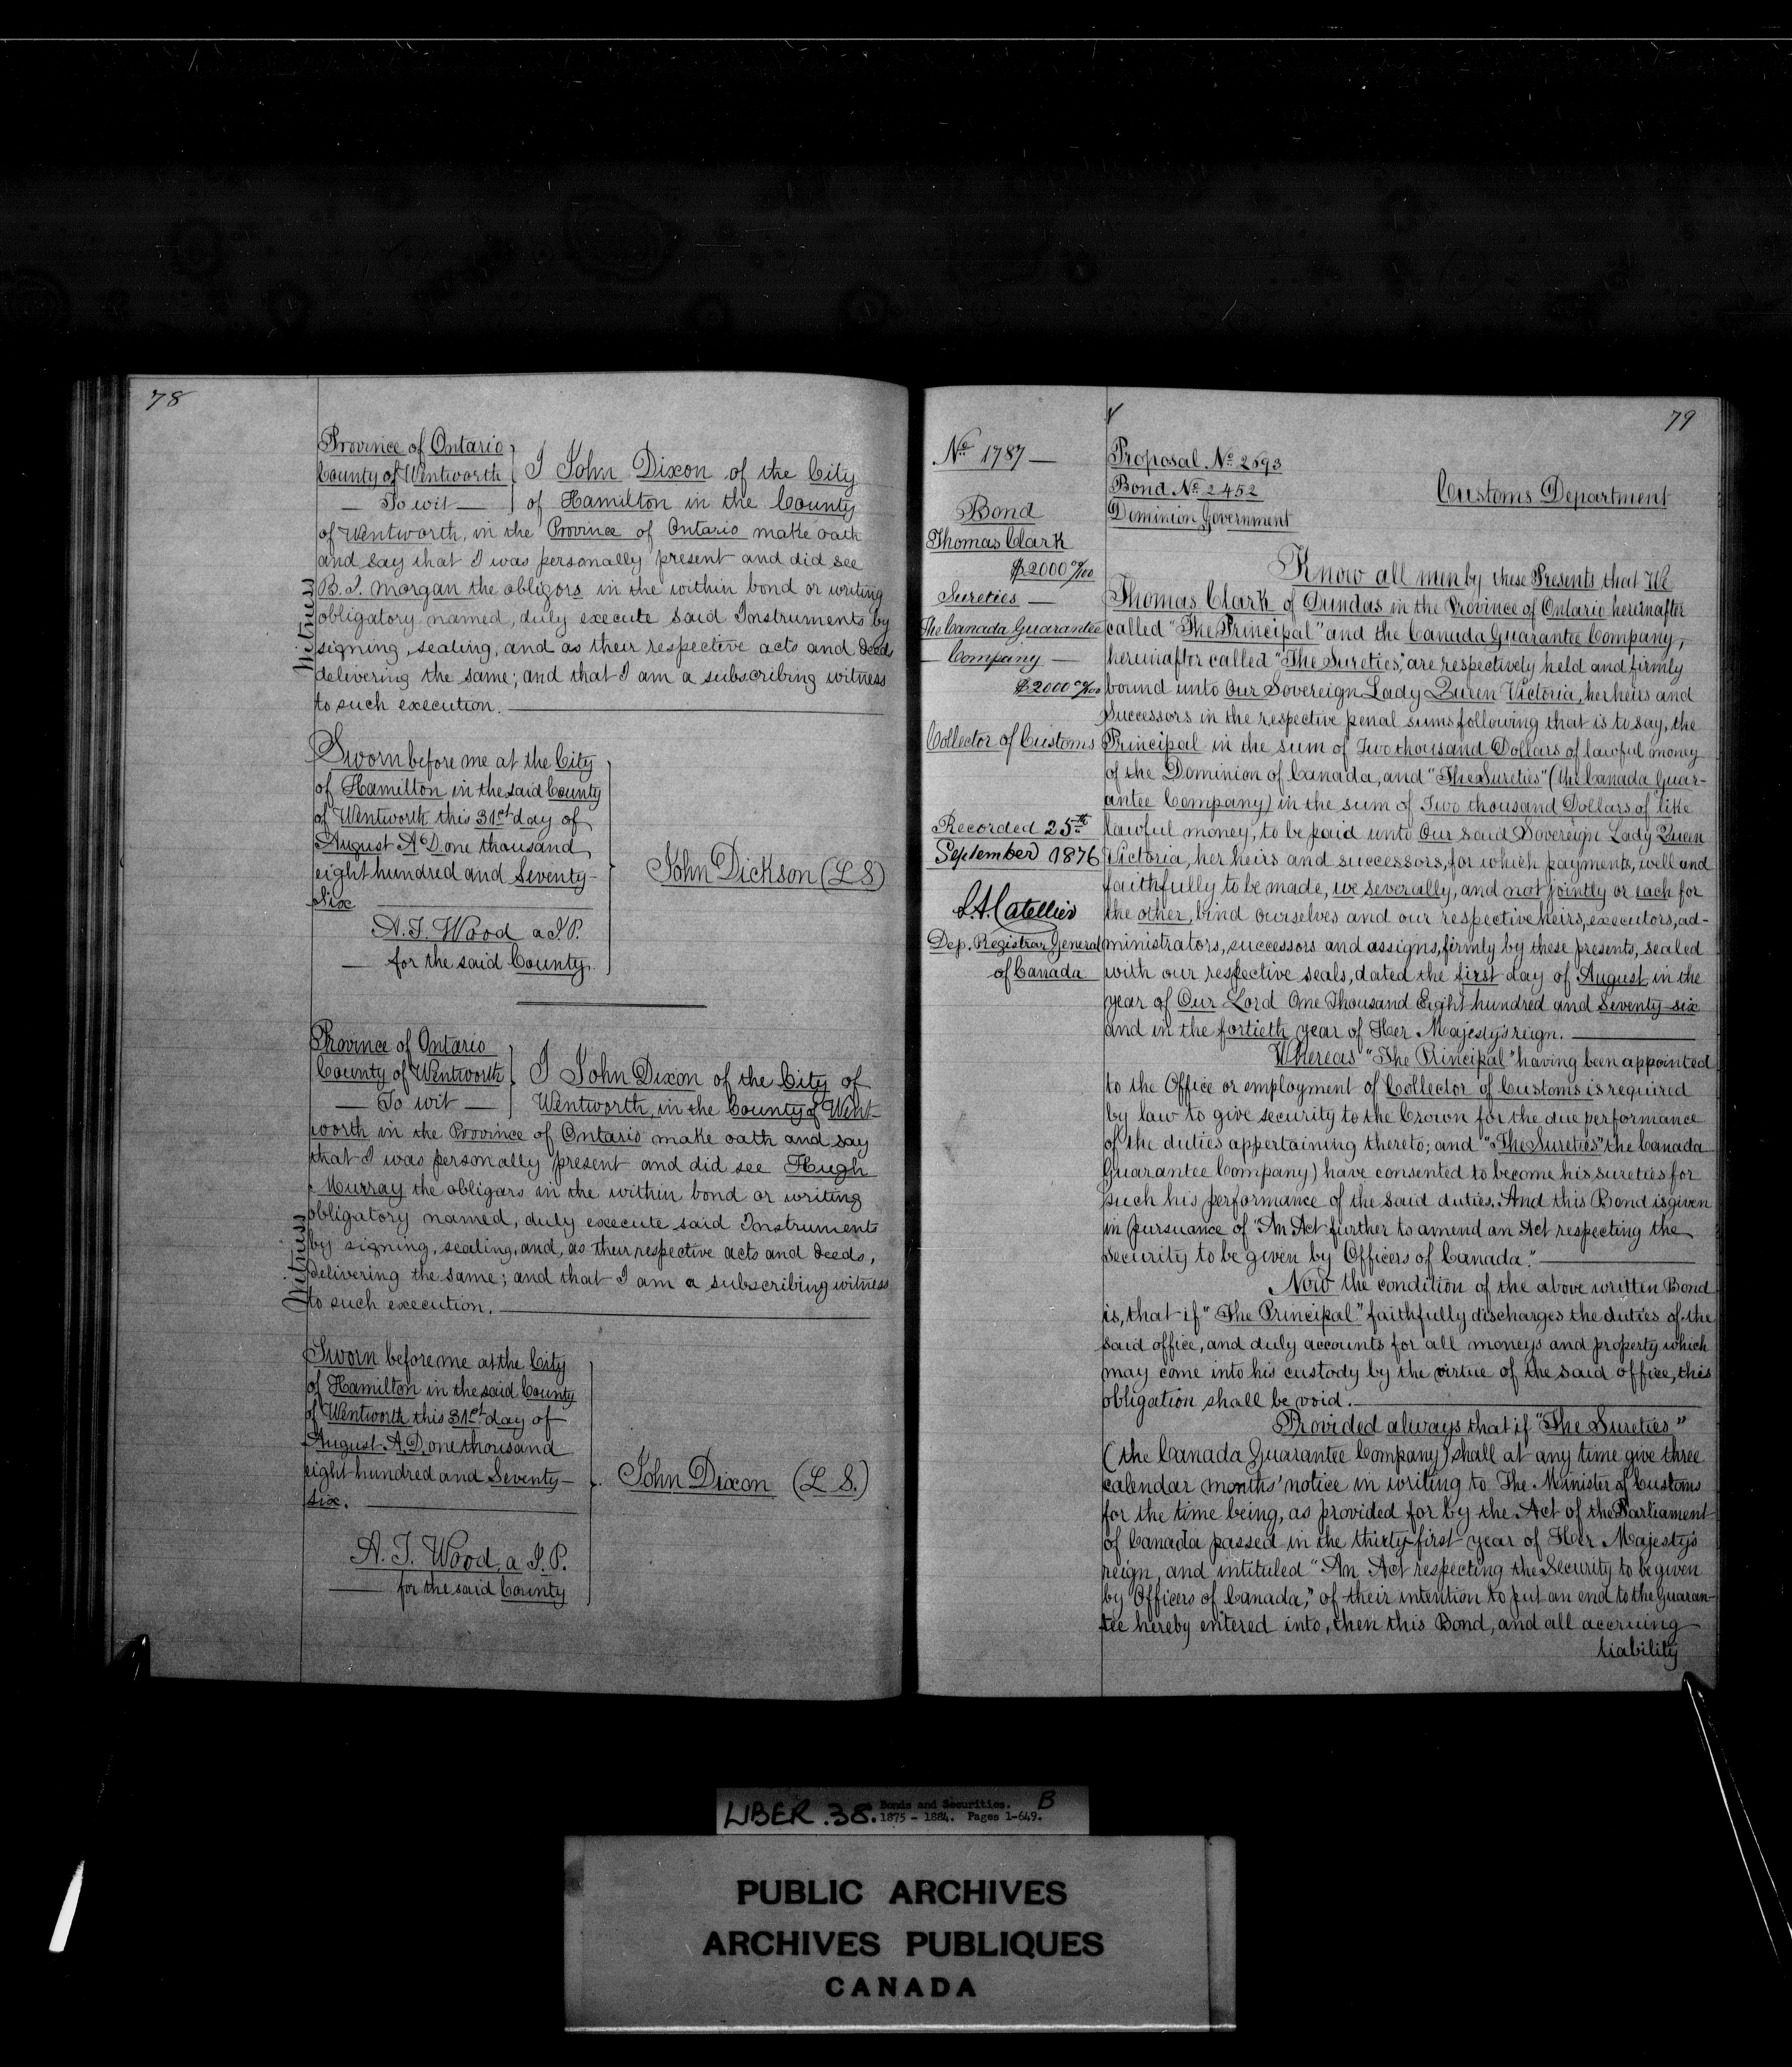 78
Province of Ontario
County of Wentworth
— To wit —
I John Dixon of the City
of Hamilton in the County
of Wentworth, in the Province of Ontario make oath
and say that I was personally present and did see
B. J. Morgan the obligors in the within bond or writing
obligatory named, duly execute said Instruments by
signing, sealing, and as their respective acts and deeds
delivering the same; and that I am a subscribing witness
to such execution.
Witness
Sworn before me at the City
of Hamilton in the said County
of Wentworth this 31st day of
August A.D. one thousand
eight hundred and Seventy-
Six
John Dickson (L S)
A. T. Wood a J.P.
— for the said County.
Province of Ontario
County of Wentworth
— To wit —
I John Dixon of the City of
Wentworth, in the County of Went-
worth in the Province of Ontario make oath and say
that I was personally present and did see Hugh
Murray the obligors in the within bond or writing
obligatory named, duly execute said Instruments
by signing, sealing, and, as their respective acts and deeds,
delivering the same; and that I am a subscribing witness
to such execution.
Witness
Sworn before me at the City
of Hamilton in the said County
of Wentworth this 31st day of
August A.D. one thousand
eight hundred and Seventy-
Six.
John Dixon (L S.)
A. T. Wood, a J.P.
— for the said County
79
No 1787 —
Bond
Thomas Clark
$2000 00/100
Sureties —
The Canada Guarantee
— Company —
$2000 00/100
Collector of Customs
Recorded 25th
September 1876
L.A. Catellier
Dep. Registrar General
of Canada
Proposal No 2693
Bond No 2452
Dominion Government
Customs Department
Know all men by these Presents that We
Thomas Clark of Dundas in the Province of Ontario hereinafter
called "The Principal" and the Canada Guarantee Company,
hereinafter called "The Sureties", are respectively held and firmly
bound unto Our Sovereign Lady Queen Victoria, her heirs and
Successors in the respective penal sums following that is to say, the
Principal in the sum of Two thousand Dollars of lawful money
of the Dominion of Canada, and "The Sureties" (the Canada Guar-
antee Company) in the sum of Two thousand Dollars of like
lawful money, to be paid unto Our said Sovereign Lady Queen
Victoria, her heirs and successors, for which payments, well and
faithfully to be made, we severally, and not jointly or each for
the other, bind ourselves and our respective heirs, executors, ad-
ministrators, successors and assigns, firmly by these presents, sealed
with our respective seals, dated the first day of August, in the
year of Our Lord One Thousand Eight hundred and Seventy-six
and in the fortieth year of Her Majesty's reign.
Whereas "The Principal" having been appointed
to the Office or employment of Collector of Customs is required
by law to give security to the Crown for the due performance
of the duties appertaining thereto; and "The Sureties" the Canada
Guarantee Company) have consented to become his sureties for
such his performance of the said duties. And this Bond is given
in pursuance of "An Act further to amend an Act respecting the
Security to be given by Officers of Canada."
Now the condition of the above written Bond
is, that if "The Principal" faithfully discharges the duties of the
said office, and duly accounts for all moneys and property which
may come into his custody by the virtue of the said office, this
obligation shall be void.
Provided always that if "The Sureties"
(the Canada Guarantee Company) shall at any time give three
calendar months' notice in writing to The Minister of Customs
for the time being, as provided for by the Act of the Parliament
of Canada passed in the thirty-first year of Her Majesty's
reign, and intituled "An Act respecting the Security to be given
by Officers of Canada," of their intention to put an end to the Guaran-
tee hereby entered into, then this Bond, and all accruing
liability
LIBER. 38. Bonds and Securities. B
1875 - 1884. Pages 1-649.
PUBLIC ARCHIVES
ARCHIVES PUBLIQUES
CANADA